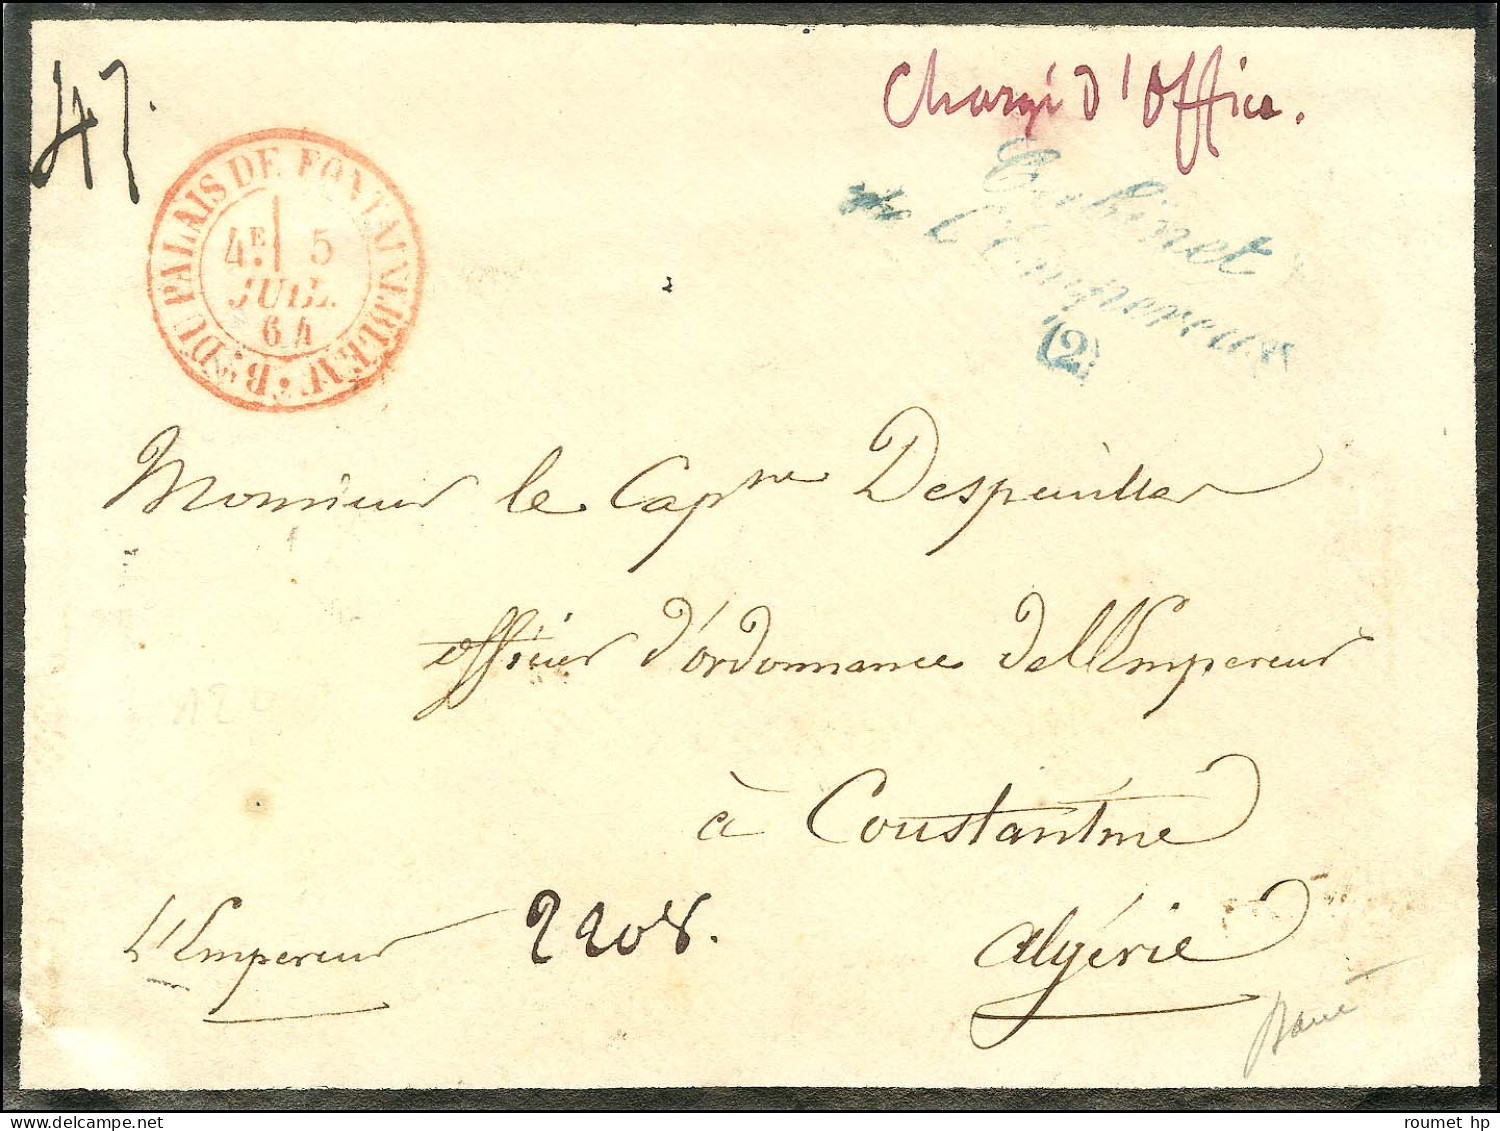 47.
Chargé d'Office.
Bau DU PALAIS DE FONTAINEBLEAU
4E 5
JUIL.
64
Cabinet
de l'Empereur
(2)
Monsieur le Capne Despeuilles
officier d'ordonnance de l'Empereur
à Constantine
Algérie
L'Empereur 2208.
roumet hp